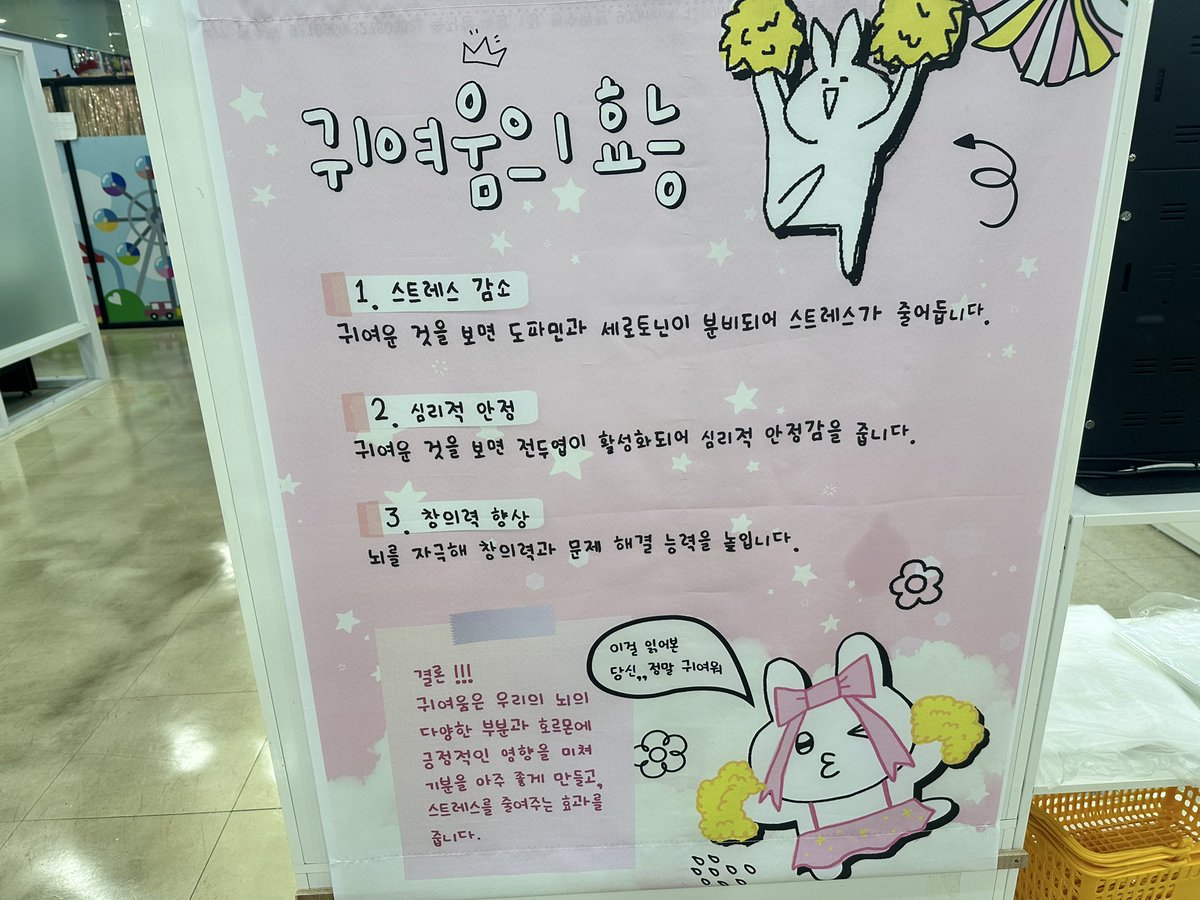 귀여움의 효능
1. 스트레스 감소
귀여운 것을 보면 도파민과 세로토닌이 분비되어 스트레스가 줄어듭니다.
2. 심리적 안정
귀여운 것을 보면 전두엽이 활성화되어 심리적 안정감을 줍니다.
3. 창의력 향상
뇌를 자극해 창의력과 문제 해결 능력을 높입니다.
결론 !!!
귀여움은 우리의 뇌의
다양한 부분과 호르몬에
긍정적인 영향을 미쳐
기분을 아주 좋게 만들고,
스트레스를 줄여주는 효과를
줍니다.
이걸 읽어본
당신,, 정말 귀여워